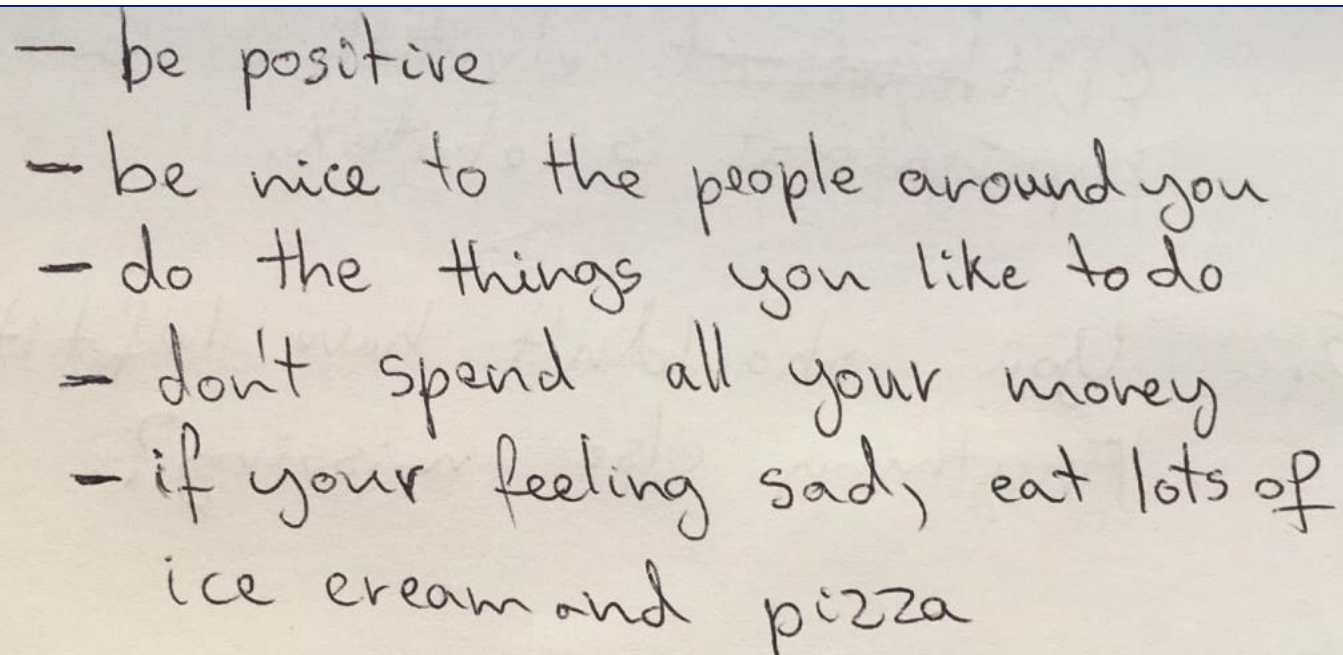 - be positive
- be nice to the people around you
- do the things you like to do
- don't spend all your money
- if your feeling sad, eat lots of
ice cream and pizza